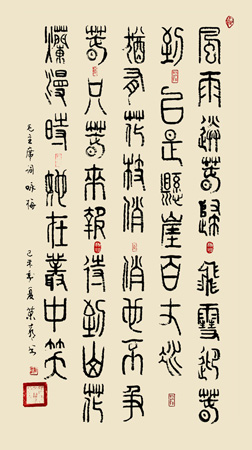 風雨送春歸飛雪迎春
到已是懸崖百丈冰
猶有花枝俏俏也不爭
春只春來報待到山花
爛漫時她在叢中笑
毛主席詞詠梅
年夏